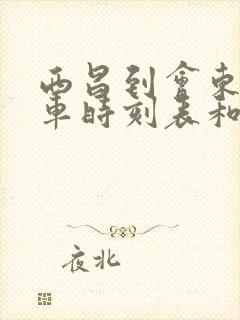 西昌到會東
車時刻表和
夜北